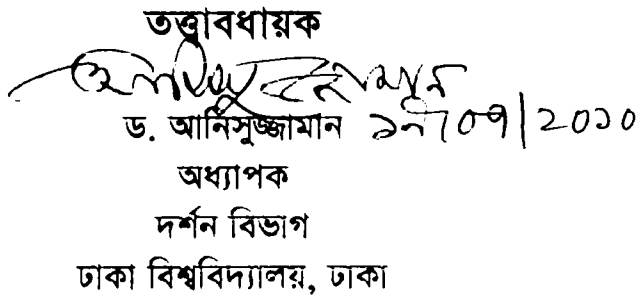 তত্ত্বাবধায়ক
আনিসুজ্জামান
ড. আনিসুজ্জামান
অধ্যাপক
দর্শন বিভাগ
ঢাকা বিশ্ববিদ্যালয়, ঢাকা